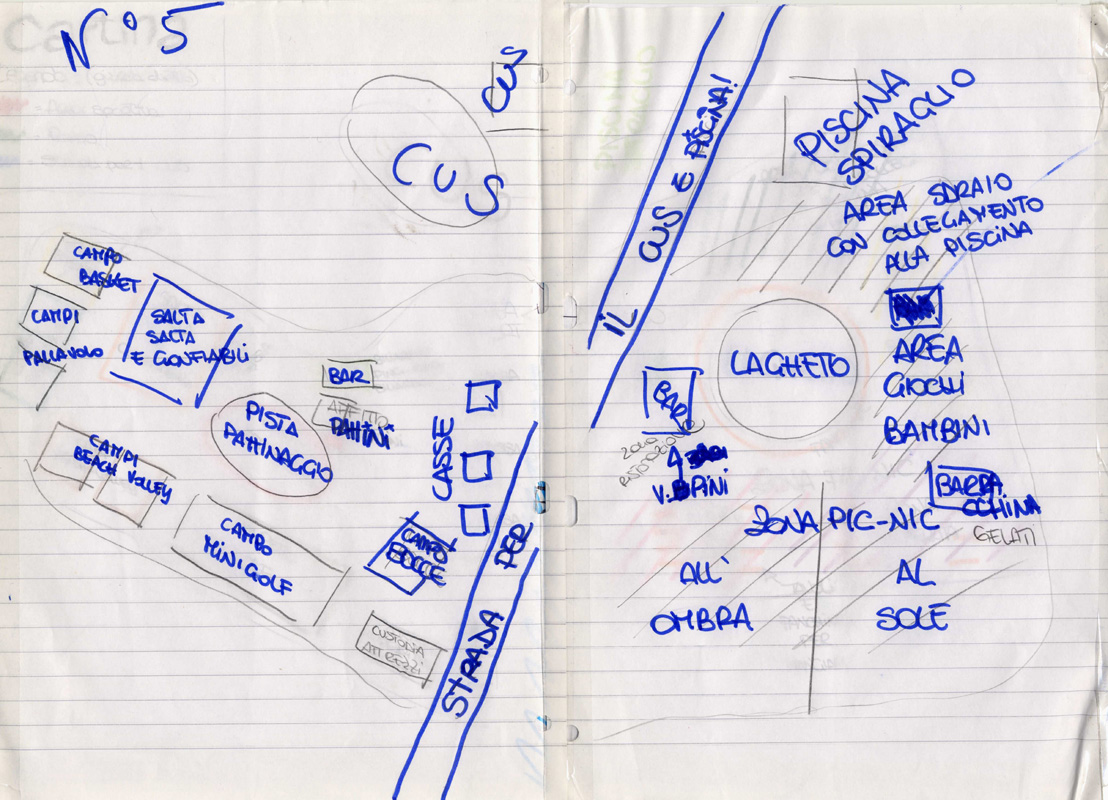 N° 5
CUS
CUS
CAMPO
BASKET
CAMPI
PALLAVOLO
SALTA
SALTA
E GONFIABILI
BAR
AFFITTO
PATTINI
PISTA
PATTINAGGIO
CASSE
CAMPI
BEACH VOLLEY
CAMPO
MINIGOLF
CAMPO
BOCCE
CUSTODIA
ATTREZZI
STRADA PER
IL CUS E PISCINA!
PISCINA
SPIRAGLIO
AREA SDRAIO
CON COLLEGAMENTO
ALLA PISCINA
LAGHETO
AREA
GIOCHI
BAMBINI
BAR
ZONA
RISTORAZIONE
BARRA
CCHINA
GELATI
ZONA PIC-NIC
ALL'
OMBRA
AL
SOLE